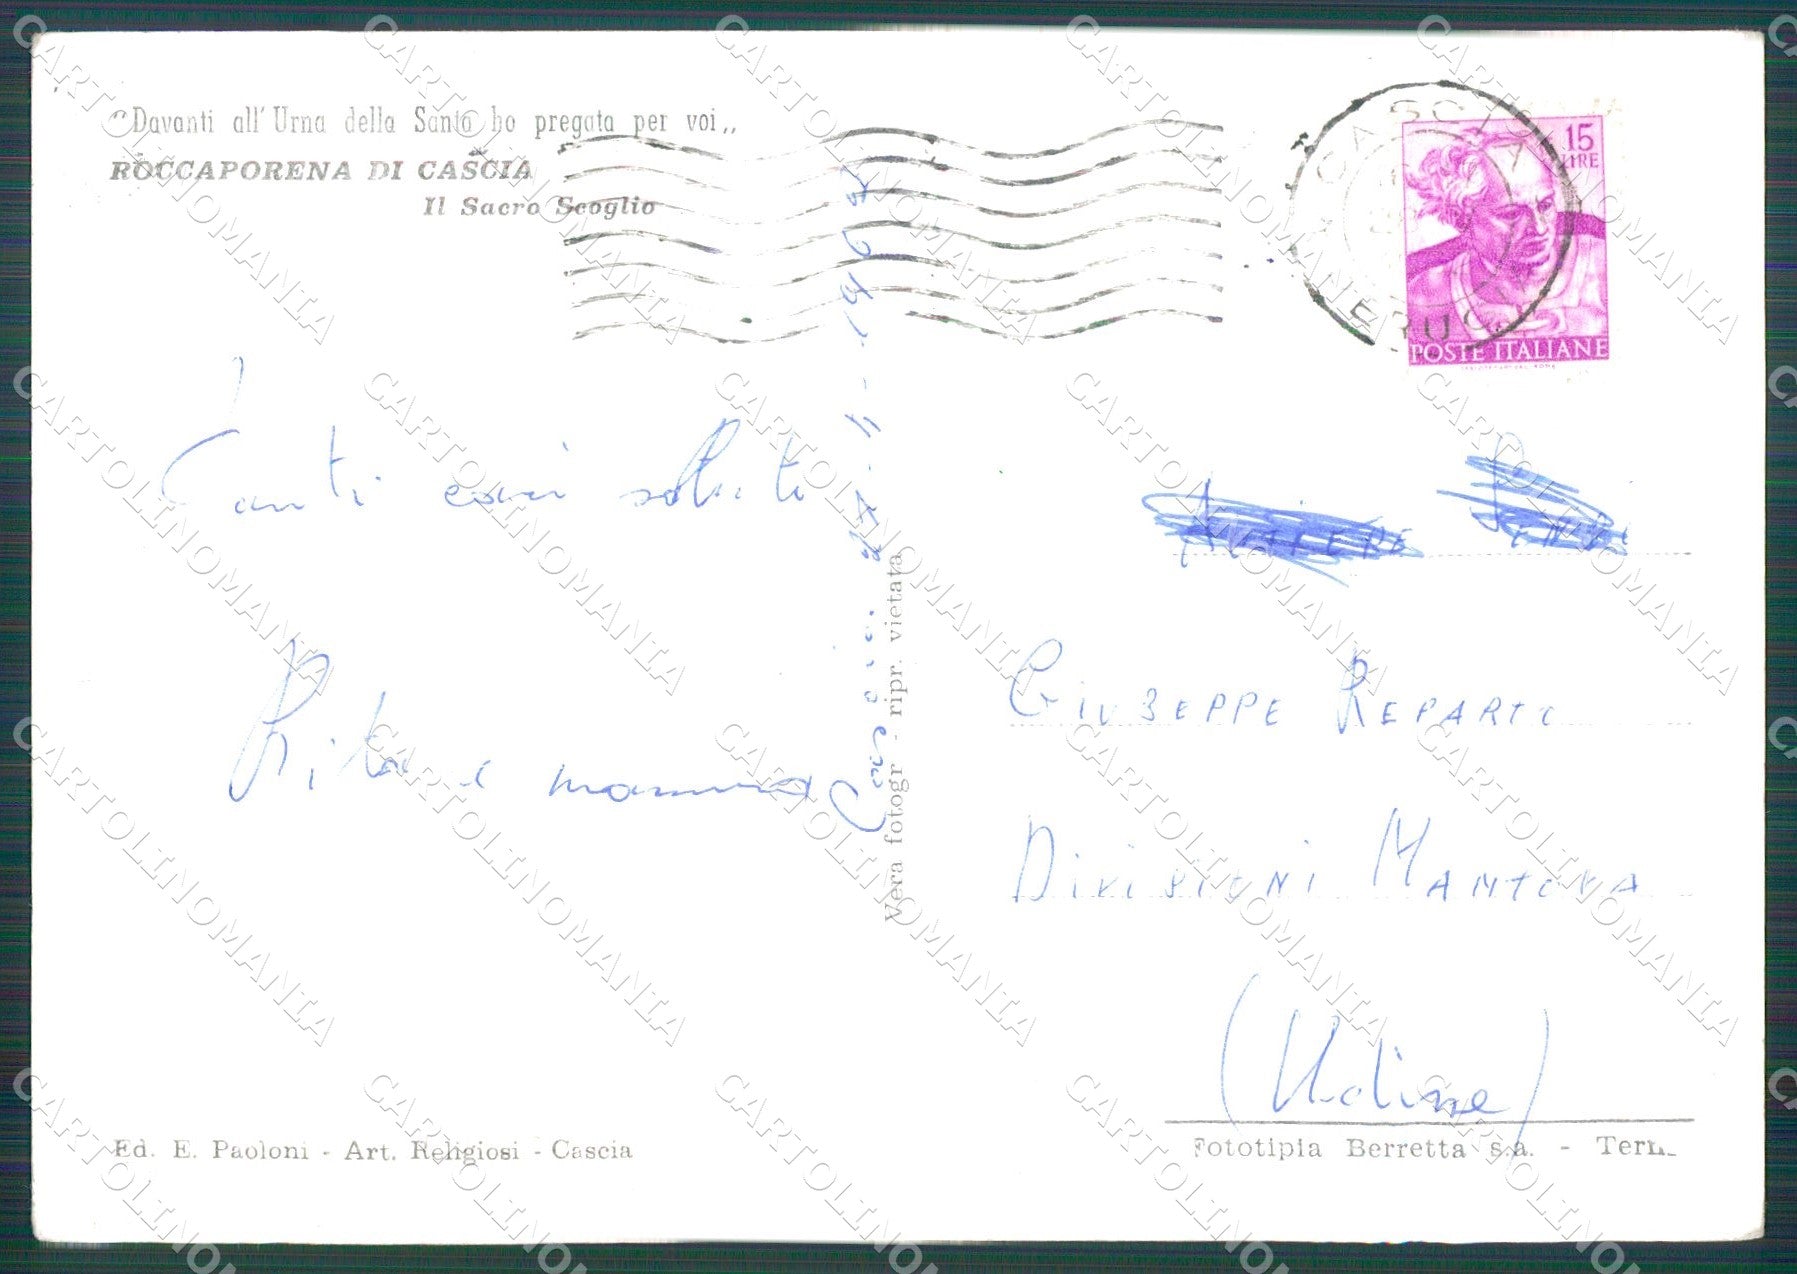 “Davanti all'Urna della Santa ho pregato per voi„
ROCCAPORENA DI CASCIA
Il Sacro Scoglio
CASCIA
15
LIRE
POSTE ITALIANE
Tanti cari saluti
Rita e mamma
Cascia
4-1962
Vera fotogr - ripr. vietata
GIUSEPPE REPARTO
DIVISIONI MANTOVA
(Udine)
Ed. E. Paoloni - Art. Religiosi - Cascia
Fototipia Berretta s.a. - Terni
CARTOLINOMANIA